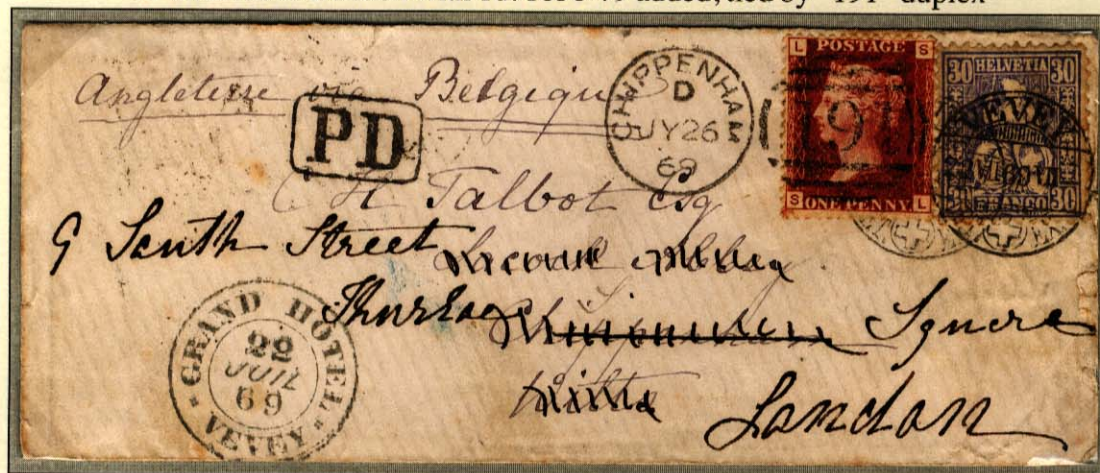 added, tied by "191" duplex
Angleterre via Belgique
PD
CHIPPENHAM
D
JY 26
69
L S
POSTAGE
191
S L
ONE PENNY
30 HELVETIA 30
VEVEY
30 FRANCO 30
C H Talbot Esq
9 South Street
Lacock Abbey
Thurloe Chippenham Square
Wilts
London
GRAND HOTEL
22
JUIL
69
VEVEY